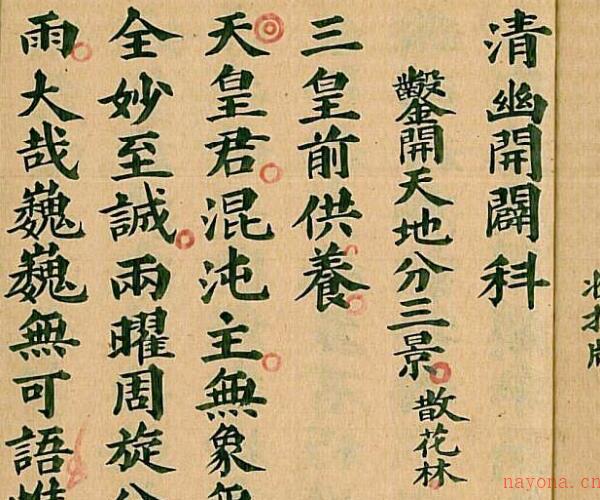 清幽開闢科
鑿開天地分三景 散花林
三皇前供養
天皇君混沌主無象
全妙至誠兩曜周旋
雨大哉巍巍無可語
nayona.cn